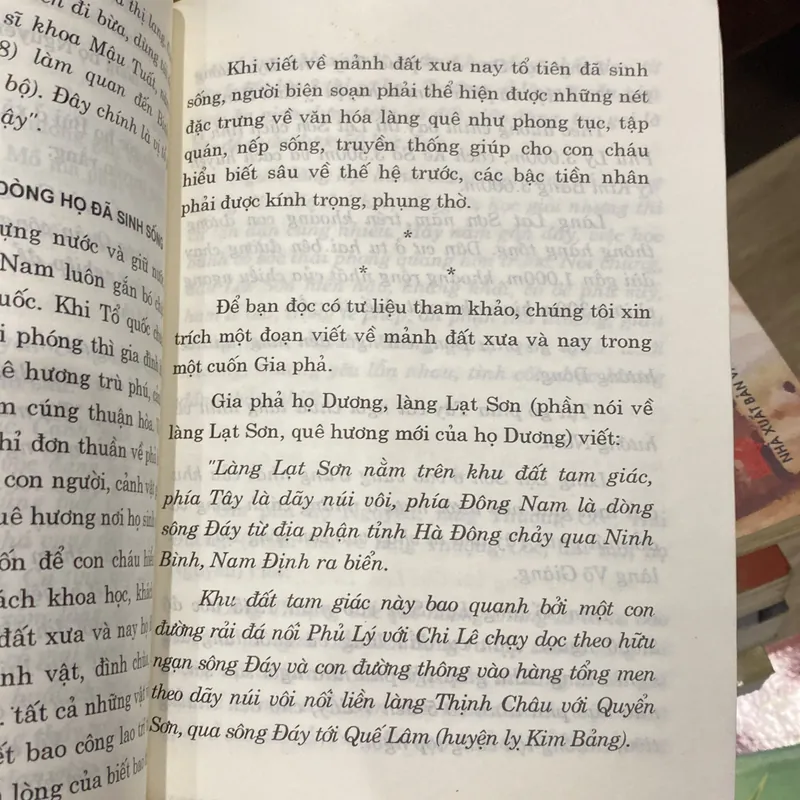 đi bừa, dùng
sĩ khoa Mậu Tuất,
8) làm quan đến
bộ). Đây chính là vị
ậy".
DÒNG HỌ ĐÃ SINH SỐNG
ựng nước và giữ
Nam luôn gắn bó
uốc. Khi Tổ quốc
i phóng thì gia đình
ê hương trù phú,
m cúng thuận hòa.
hỉ đơn thuần về
con người, cảnh vật
uê hương nơi họ sinh
ốn để con cháu
ách khoa học,
đất xưa và nay họ
nh vật, đình
tất cả những
ết bao công lao
lòng của biết bao
Khi viết về mảnh đất xưa nay tổ tiên đã sinh
sống, người biên soạn phải thể hiện được những nét
đặc trưng về văn hóa làng quê như phong tục, tập
quán, nếp sống, truyền thống giúp cho con cháu
hiểu biết sâu về thế hệ trước, các bậc tiền nhân
phải được kính trọng, phụng thờ.
*
* *
Để bạn đọc có tư liệu tham khảo, chúng tôi xin
trích một đoạn viết về mảnh đất xưa và nay trong
một cuốn Gia phả.
Gia phả họ Dương, làng Lạt Sơn (phần nói về
làng Lạt Sơn, quê hương mới của họ Dương) viết:
"Làng Lạt Sơn nằm trên khu đất tam giác,
phía Tây là dãy núi vôi, phía Đông Nam là dòng
sông Đáy từ địa phận tỉnh Hà Đông chảy qua Ninh
Bình, Nam Định ra biển.
Khu đất tam giác này bao quanh bởi một con
đường rải đá nối Phủ Lý với Chi Lê chạy dọc theo hữu
ngạn sông Đáy và con đường thông vào hàng tổng men
theo dãy núi vôi nối liền làng Thịnh Châu với Quyển
Sơn, qua sông Đáy tới Quế Lâm (huyện lỵ Kim Bảng).
NHÀ XUẤT BẢN